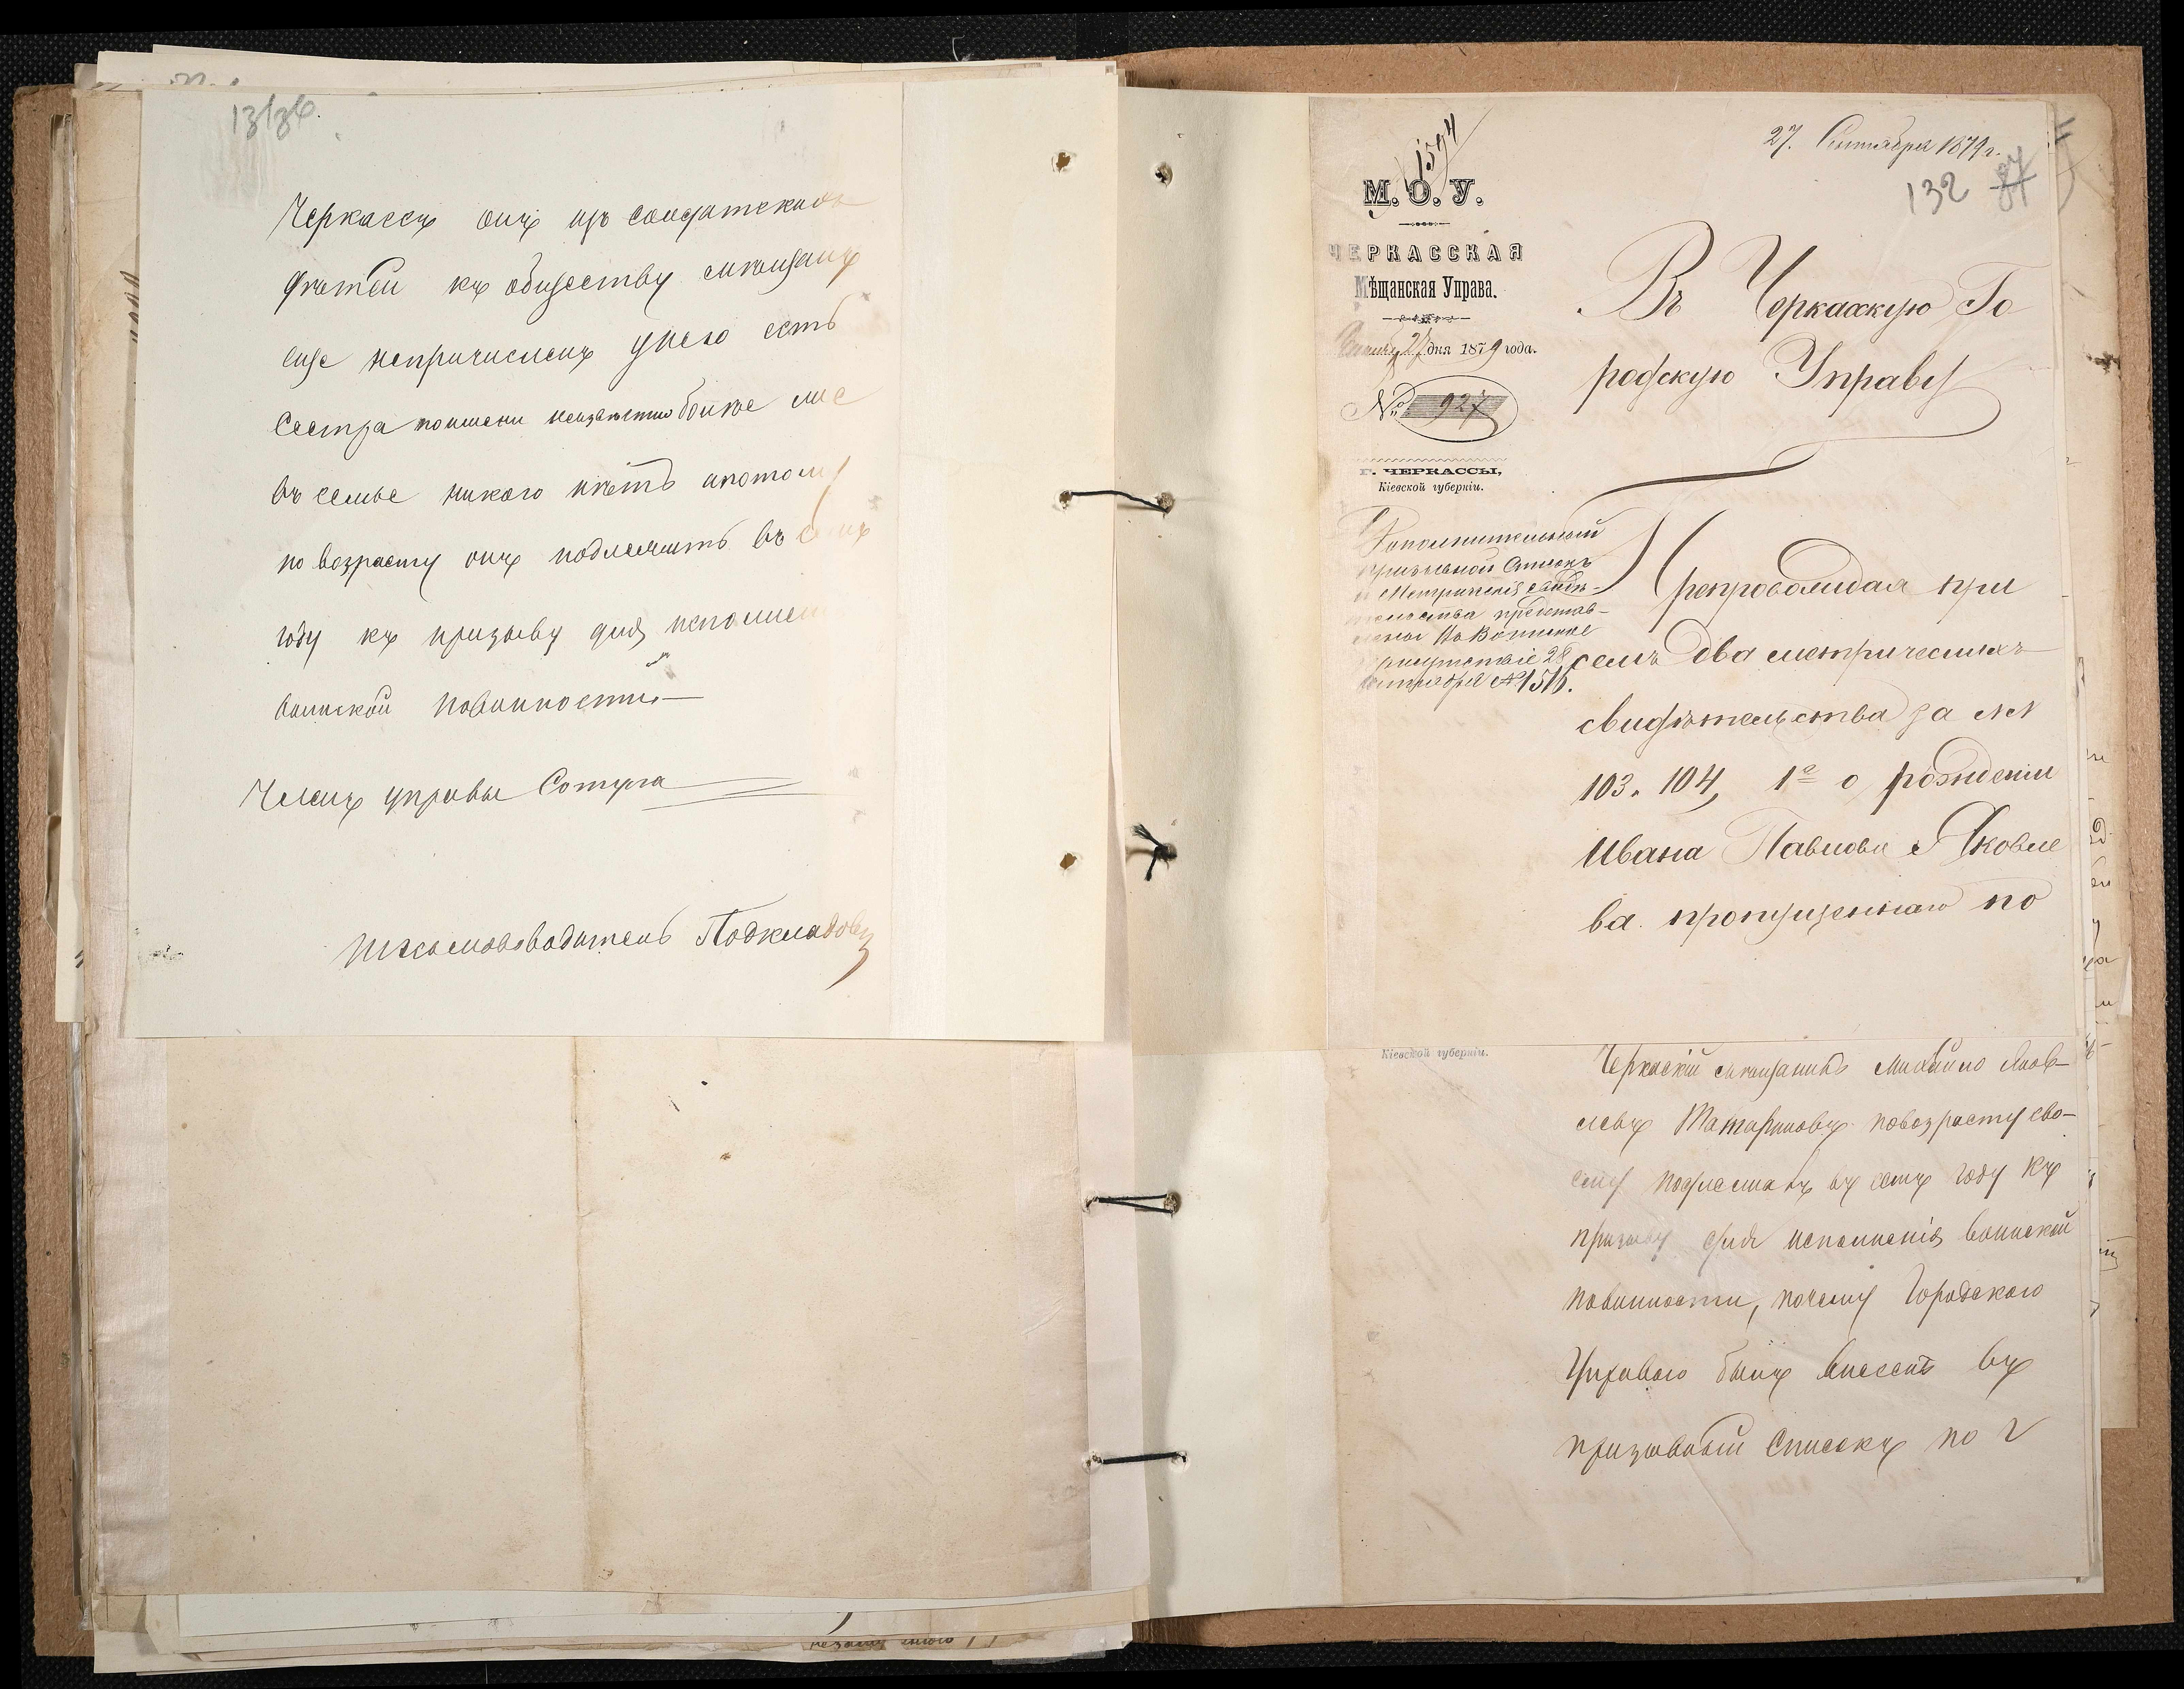 Черкассъ онъ изъ солдатскихъ
дѣтей къ обществу мѣщанъ
еще непричисленъ унего есть
Сестра поимени неизвѣстно болѣе
въ семье никого нѣтъ апотому
по возрасту онъ подлежитъ въ семъ
году къ призыву для исполнен
воинской повинности
Членъ управы Сотула
Письмоводитель Подкладовъ
27. Сентября 1879 г.
132 87
1594
М. О. У.
ЧЕРКАССКАЯ
Мѣщанская Управа.
27 дня 1879 года.
№ 927
Г. ЧЕРКАССЫ,
Кіевской губерніи.
Въ Черкасскую Го
родскую Управу
Дополнительный
призывной списокъ
и Метрическія свидѣ-
тельства представ-
лены въ Воинское
присутствіе 28
сентября №1516.
Препровождая при
семъ два метрическихъ
свидѣтельства за №№
103. 104, 1е о рожденіи
Ивана Павлова Яковле
ва пропущеннаго по
Кіевской губерніи.
Черкаскій мѣщанинъ Михайло Яков-
левъ Татариновъ повозрасту сво-
ему подлежалъ въ семъ году къ
призыву для исполненія воинской
повинности, почему Городского
Управою былъ внесенъ въ
призывный Списокъ по 2